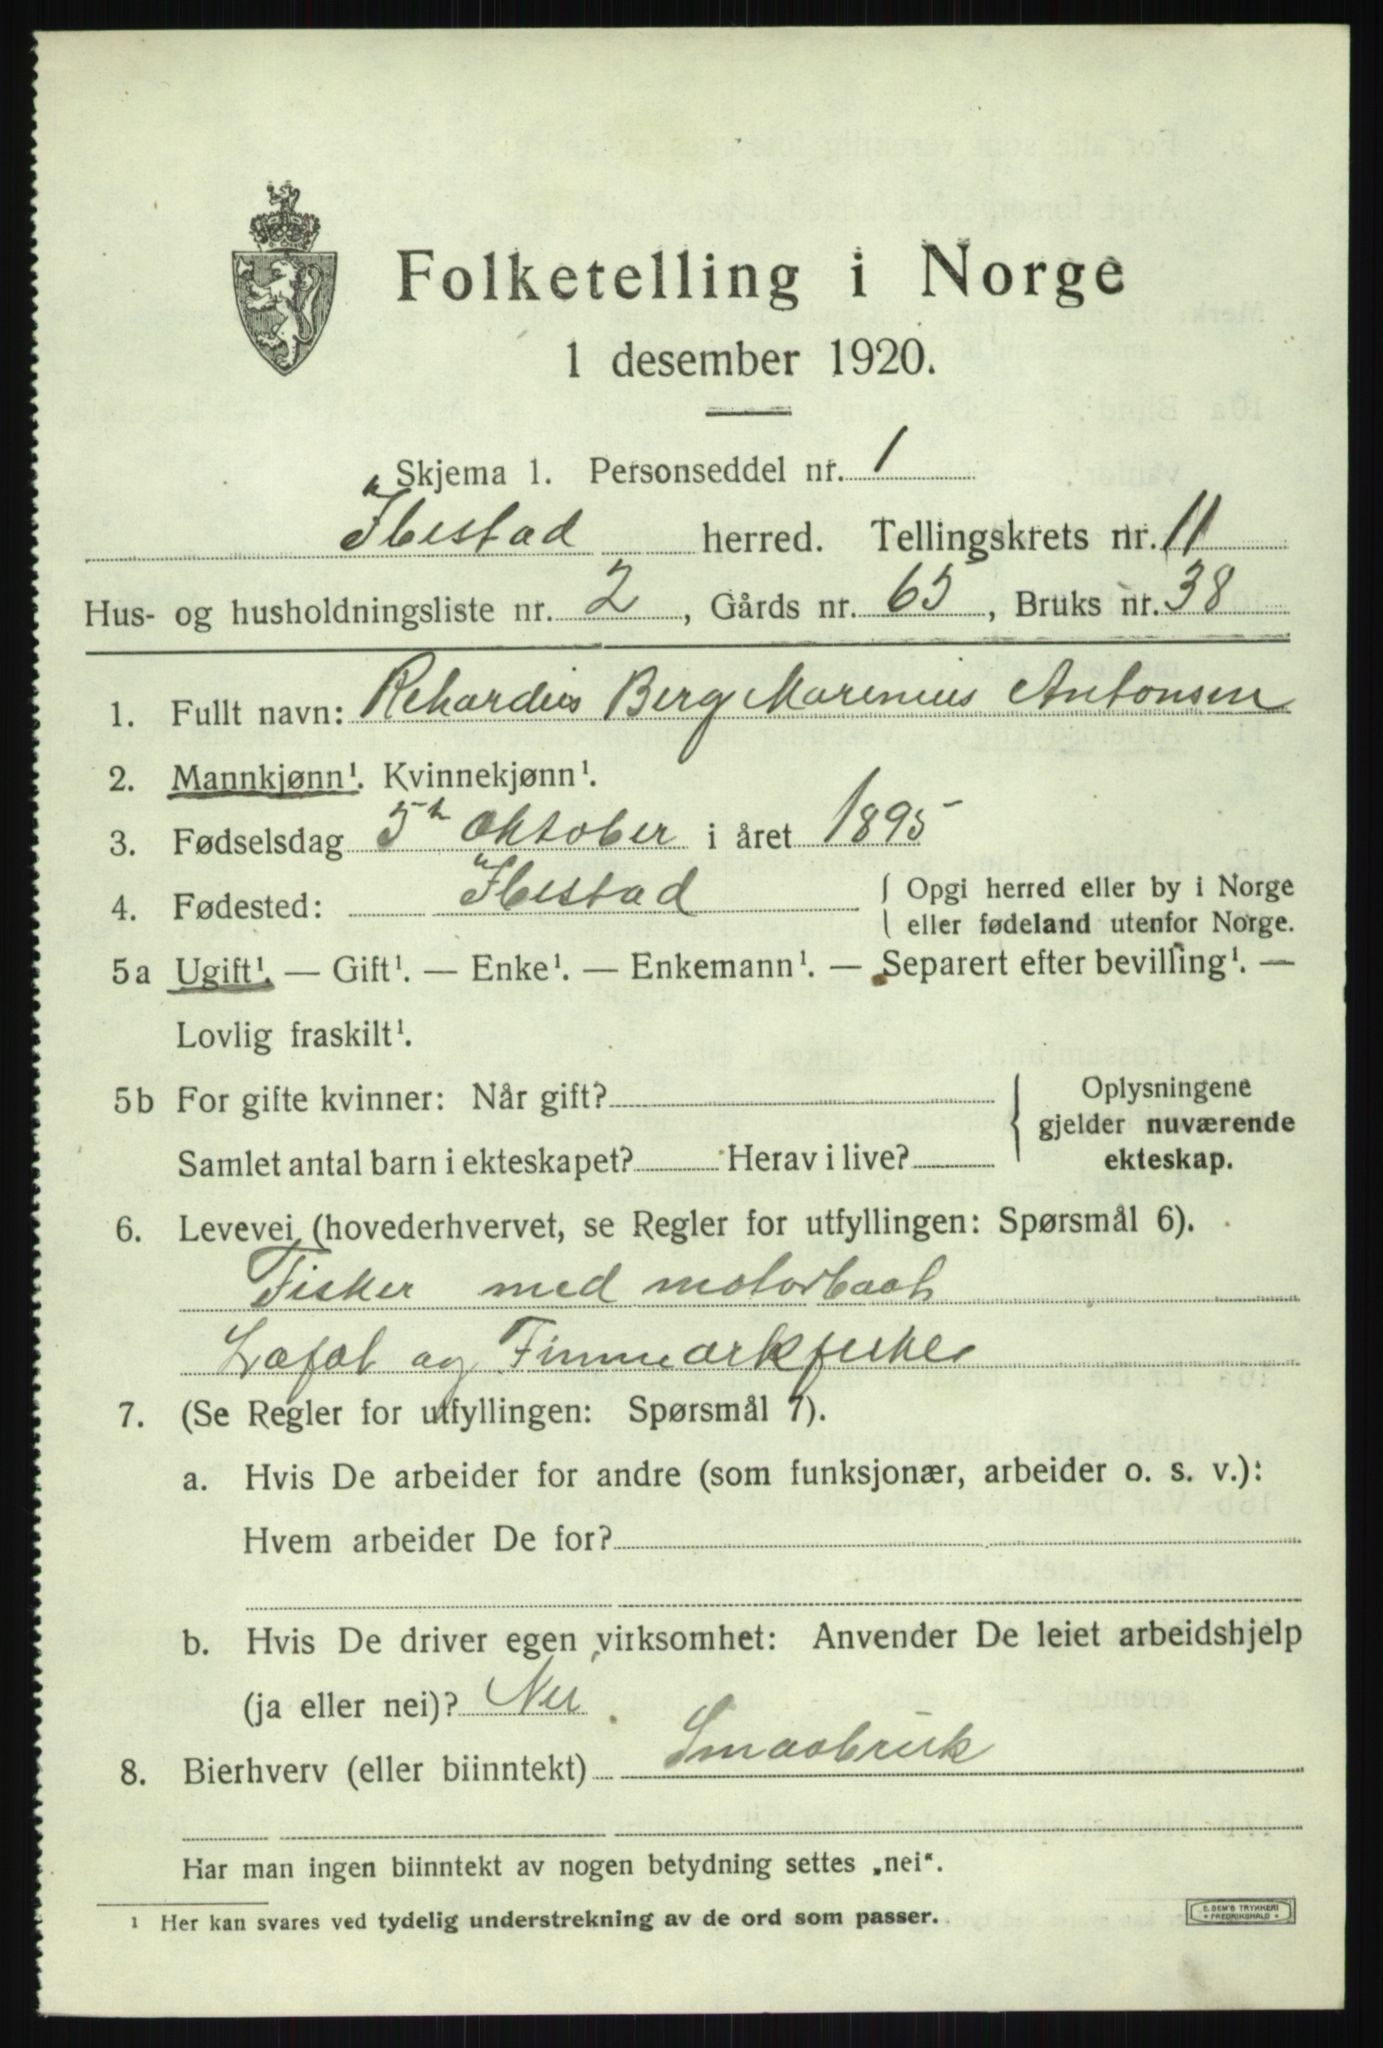 Folketelling i Norge
1 desember 1920.
Skjema 1. Personseddel nr. 1
Ibestad herred. Tellingskrets nr. 11
Hus- og husholdningsliste nr. 2, Gårds nr. 65, Bruks nr. 38
1. Fullt navn: Rikardius Berg Marenius Antonsen
2. Mannkjønn¹. Kvinnekjønn¹.
3. Fødselsdag 5te Oktober i året 1895
4. Fødested: Ibestad { Opgi herred eller by i Norge
eller fødeland utenfor Norge.
5a Ugift¹. — Gift¹. — Enke¹. — Enkemann¹. — Separert efter bevilling¹. —
Lovlig fraskilt¹.
5b For gifte kvinner: Når gift?
Samlet antal barn i ekteskapet? Herav i live?
Oplysningene
gjelder nuværende
ekteskap.
6. Levevei (hovederhvervet, se Regler for utfyllingen: Spørsmål 6).
Fisker med motorbaat
Lofot og Finmarkfisker
7. (Se Regler for utfyllingen: Spørsmål 7).
a. Hvis De arbeider for andre (som funksjonær, arbeider o. s. v.):
Hvem arbeider De for?
b. Hvis De driver egen virksomhet: Anvender De leiet arbeidshjelp
(ja eller nei)? Nei
8. Bierhverv (eller biinntekt) Smaabruk
Har man ingen biinntekt av nogen betydning settes „nei“.
¹ Her kan svares ved tydelig understrekning av de ord som passer.
E. SEM'S TRYKKERI
FREDRIKSHALD